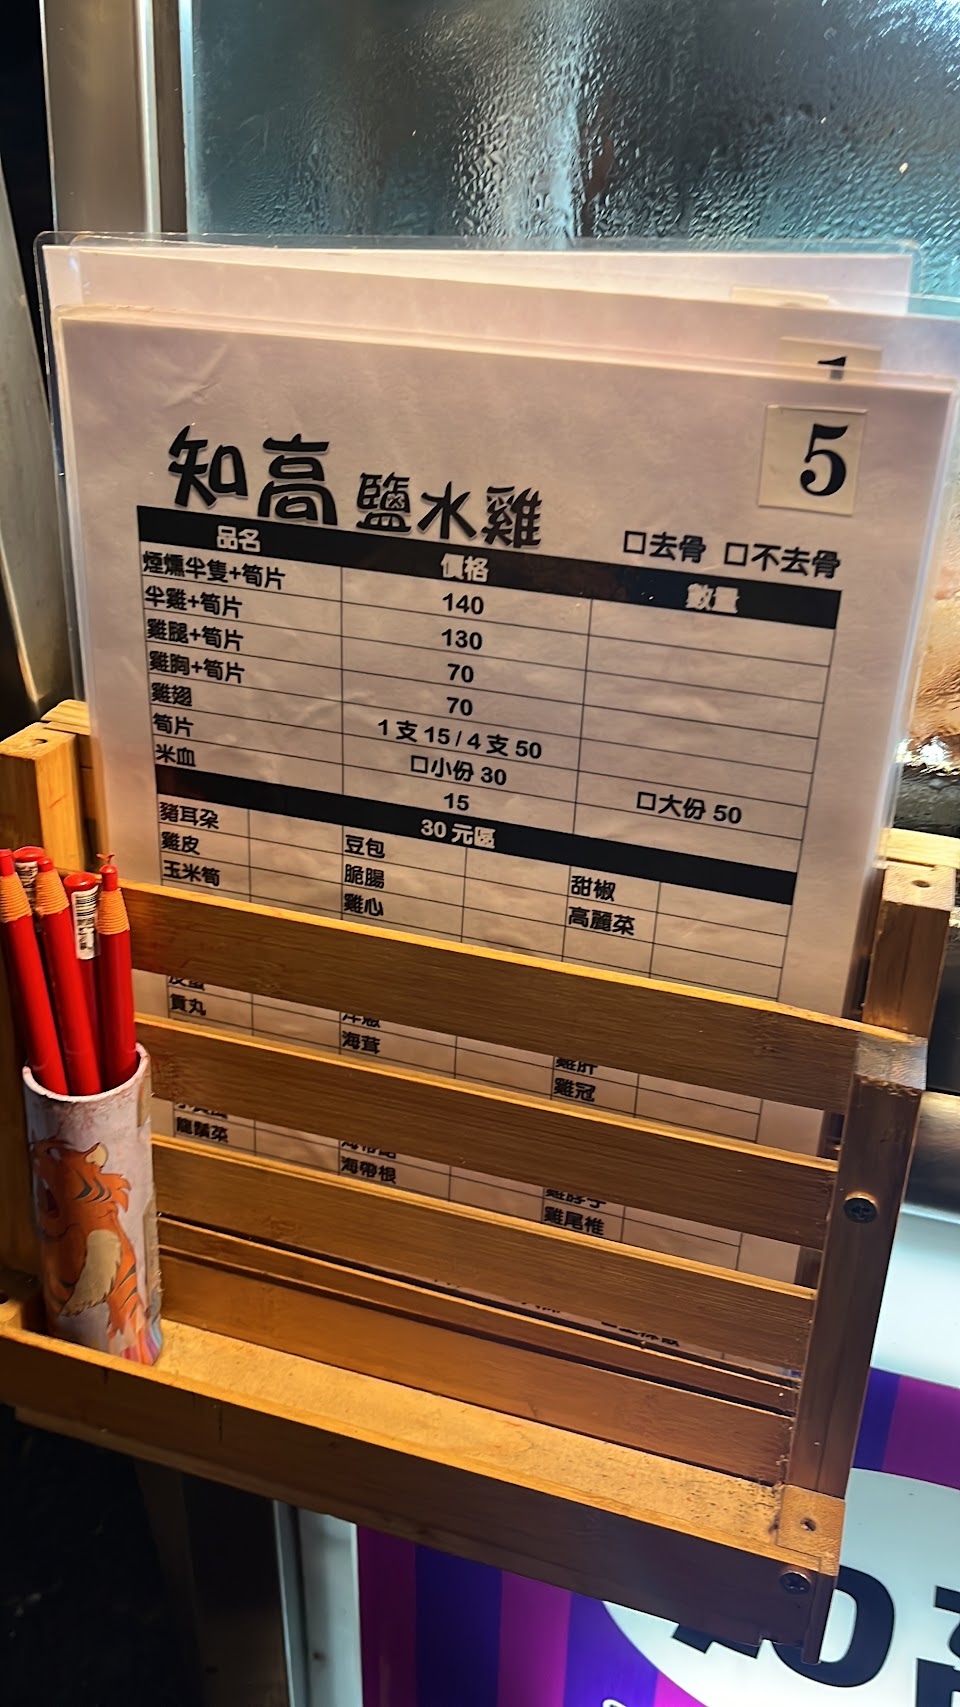 1
5
知高 鹽水雞
□去骨 □不去骨
品名 價格 數量
煙燻半隻+筍片 140
半雞+筍片 130
雞腿+筍片 70
雞胸+筍片 70
雞翅 1 支 15 / 4 支 50
筍片 □小份 30 □大份 50
米血 15
30 元區
豬耳朵 豆包 甜椒
雞皮 脆腸 高麗菜
玉米筍 雞心
皮蛋 洋蔥 雞肝
貢丸 海茸 雞冠
龍鬚菜 海帶根 雞尾椎